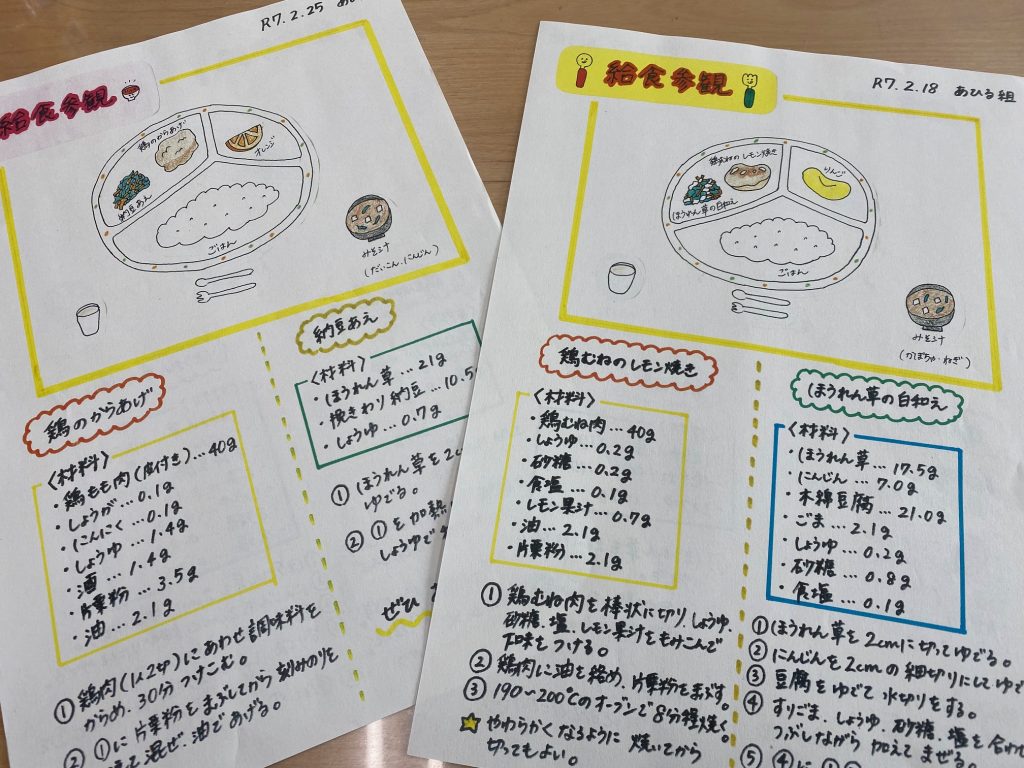 R7.2.25
給食参観
鶏のからあげ
オレンジ
納豆あえ
ごはん
みそ汁
(だいこん、にんじん)
鶏のからあげ
〈材料〉
・鶏もも肉(皮付き)…40g
・しょうが…0.1g
・にんにく…0.1g
・しょうゆ…1.4g
・酒…1.4g
・片栗粉…3.5g
・油…2.1g
① 鶏肉(1人2切)にあわせ調味料を
からめ、30分つけこむ。
② ①に片栗粉をまぶしてから刻みのりを
混ぜ、油であげる。
納豆あえ
〈材料〉
・ほうれん草…21g
・挽きわり納豆…10.5
・しょうゆ…0.7g
① ほうれん草を2c
ゆでる。
② ①を加熱
しょうゆで
ぜひ
給食参観
R7.2.18 あひる組
鶏むねのレモン焼き
りんご
ほうれん草の白和え
ごはん
みそ汁
(かぼちゃ・ねぎ)
鶏むねのレモン焼き
〈材料〉
・鶏むね肉…40g
・しょうゆ…0.2g
・砂糖…0.2g
・食塩…0.1g
・レモン果汁…0.7g
・油…2.1g
・片栗粉…2.1g
① 鶏むね肉を棒状に切り、しょうゆ、
砂糖、塩、レモン果汁をもみこんで
下味をつける。
② 鶏肉に油を絡め、片栗粉をまぶす。
③ 190~200℃のオーブンで8分程焼く。
やわらかくなるように焼いてから
切ってもよい。
ほうれん草の白和え
〈材料〉
・ほうれん草…17.5g
・にんじん…7.0g
・木綿豆腐…21.0g
・ごま…2.1g
・しょうゆ…0.2g
・砂糖…0.8g
・食塩…0.1g
① ほうれん草を2cmに切ってゆでる。
② にんじんを2cmの細切りにしてゆで
③ 豆腐をゆでて水切りをする。
④ すりごま、しょうゆ、砂糖、塩を合わせ
つぶしながら加えてまぜる。
⑤ ④に①